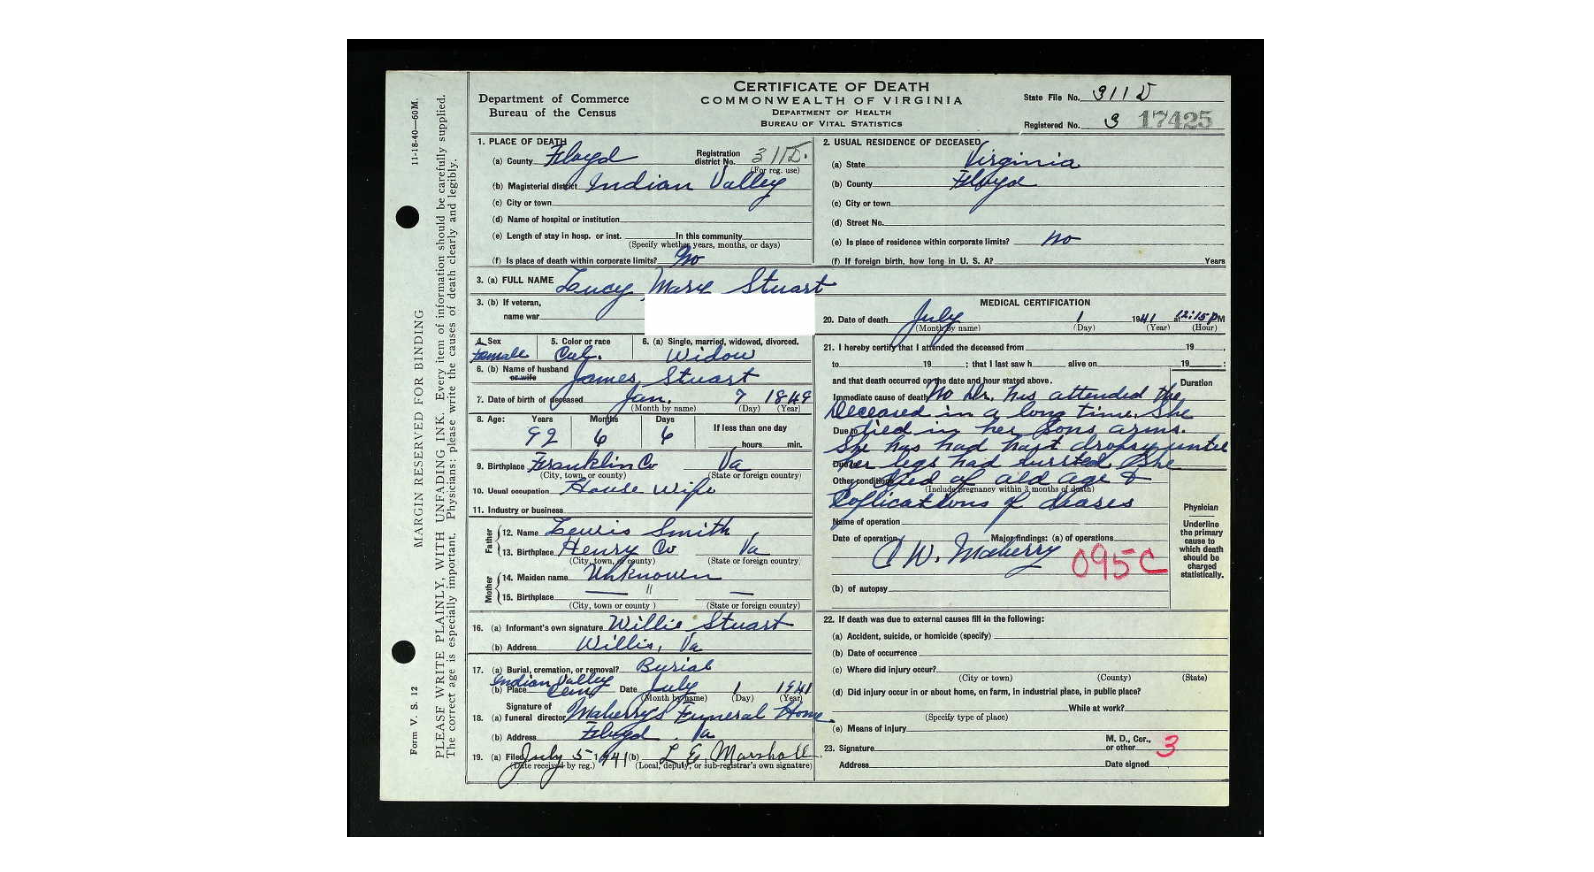 CERTIFICATE OF DEATH
COMMONWEALTH OF VIRGINIA
DEPARTMENT OF HEALTH
BUREAU OF VITAL STATISTICS
Department of Commerce
Bureau of the Census
State File No. 311D
Registered No. 3 17425
11-18-40—60M.
MARGIN RESERVED FOR BINDING
Form V. S. 12
PLEASE WRITE PLAINLY, WITH UNFADING INK. Every item of information should be carefully supplied.
The correct age is especially important. Physicians: please write the causes of death clearly and legibly.
1. PLACE OF DEATH
(a) County Floyd Registration district No. 311D.
(For reg. use)
(b) Magisterial district Indian Valley
(c) City or town
(d) Name of hospital or institution
(e) Length of stay in hosp. or inst. In this community
(Specify whether years, months, or days)
(f) Is place of death within corporate limits? No
2. USUAL RESIDENCE OF DECEASED
(a) State Virginia
(b) County Floyd
(c) City or town
(d) Street No.
(e) Is place of residence within corporate limits? no
(f) If foreign birth, how long in U. S. A? Years
3. (a) FULL NAME Lucy Mary Stuart
3. (b) If veteran,
name war
4. Sex Female
5. Color or race Col.
6. (a) Single, married, widowed, divorced. Widow
6. (b) Name of husband or wife James Stuart
7. Date of birth of deceased Jan. 7 1849
(Month by name) (Day) (Year)
8. Age: Years Months Days If less than one day
92 6 6 hours min.
9. Birthplace Franklin Co Va
(City, town, or county) (State or foreign country)
10. Usual occupation House wife
11. Industry or business
Father
12. Name Lewis Smith
13. Birthplace Henry Co Va
(City, town, or county) (State or foreign country)
Mother
14. Maiden name Unknown
15. Birthplace — " —
(City, town or county ) (State or foreign country)
16. (a) Informant's own signature Willie Stuart
(b) Address Willis, Va
17. (a) Burial, cremation, or removal? Burial
(b) Place Indian Valley Cem Date July 1 1941
(Month by name) (Day) (Year)
18. Signature of
(a) funeral director Maberry's Funeral Home
(b) Address Floyd Va
19. (a) Filed July 5 1941 (b) L. E. Marshall
(Date received by reg.) (Local, deputy, or sub-registrar's own signature)
MEDICAL CERTIFICATION
20. Date of death July 1 1941 12:15 PM
(Month by name) (Day) (Year) (Hour)
21. I hereby certify that I attended the deceased from 19
to 19 ; that I last saw h alive on 19 :
and that death occurred on the date and hour stated above.
Duration
Immediate cause of death No Dr. has attended the
Deceased in a long time. She
Due to died in her sons arms.
She has had hart dropsy until
Due to her legs had bursted. She
Other conditions died of old age &
(Include pregnancy within 3 months of death)
Coflications of deases
Name of operation
Date of operation Major findings: (a) of operations
C W. Maberry 095C
(b) of autopsy
Physician
Underline the primary cause to which death should be charged statistically.
22. If death was due to external causes fill in the following:
(a) Accident, suicide, or homicide (specify)
(b) Date of occurrence
(c) Where did injury occur?
(City or town) (County) (State)
(d) Did injury occur in or about home, on farm, in industrial place, in public place?
While at work?
(Specify type of place)
(e) Means of injury
23. Signature M. D., Cor., or other 3
Address Date signed